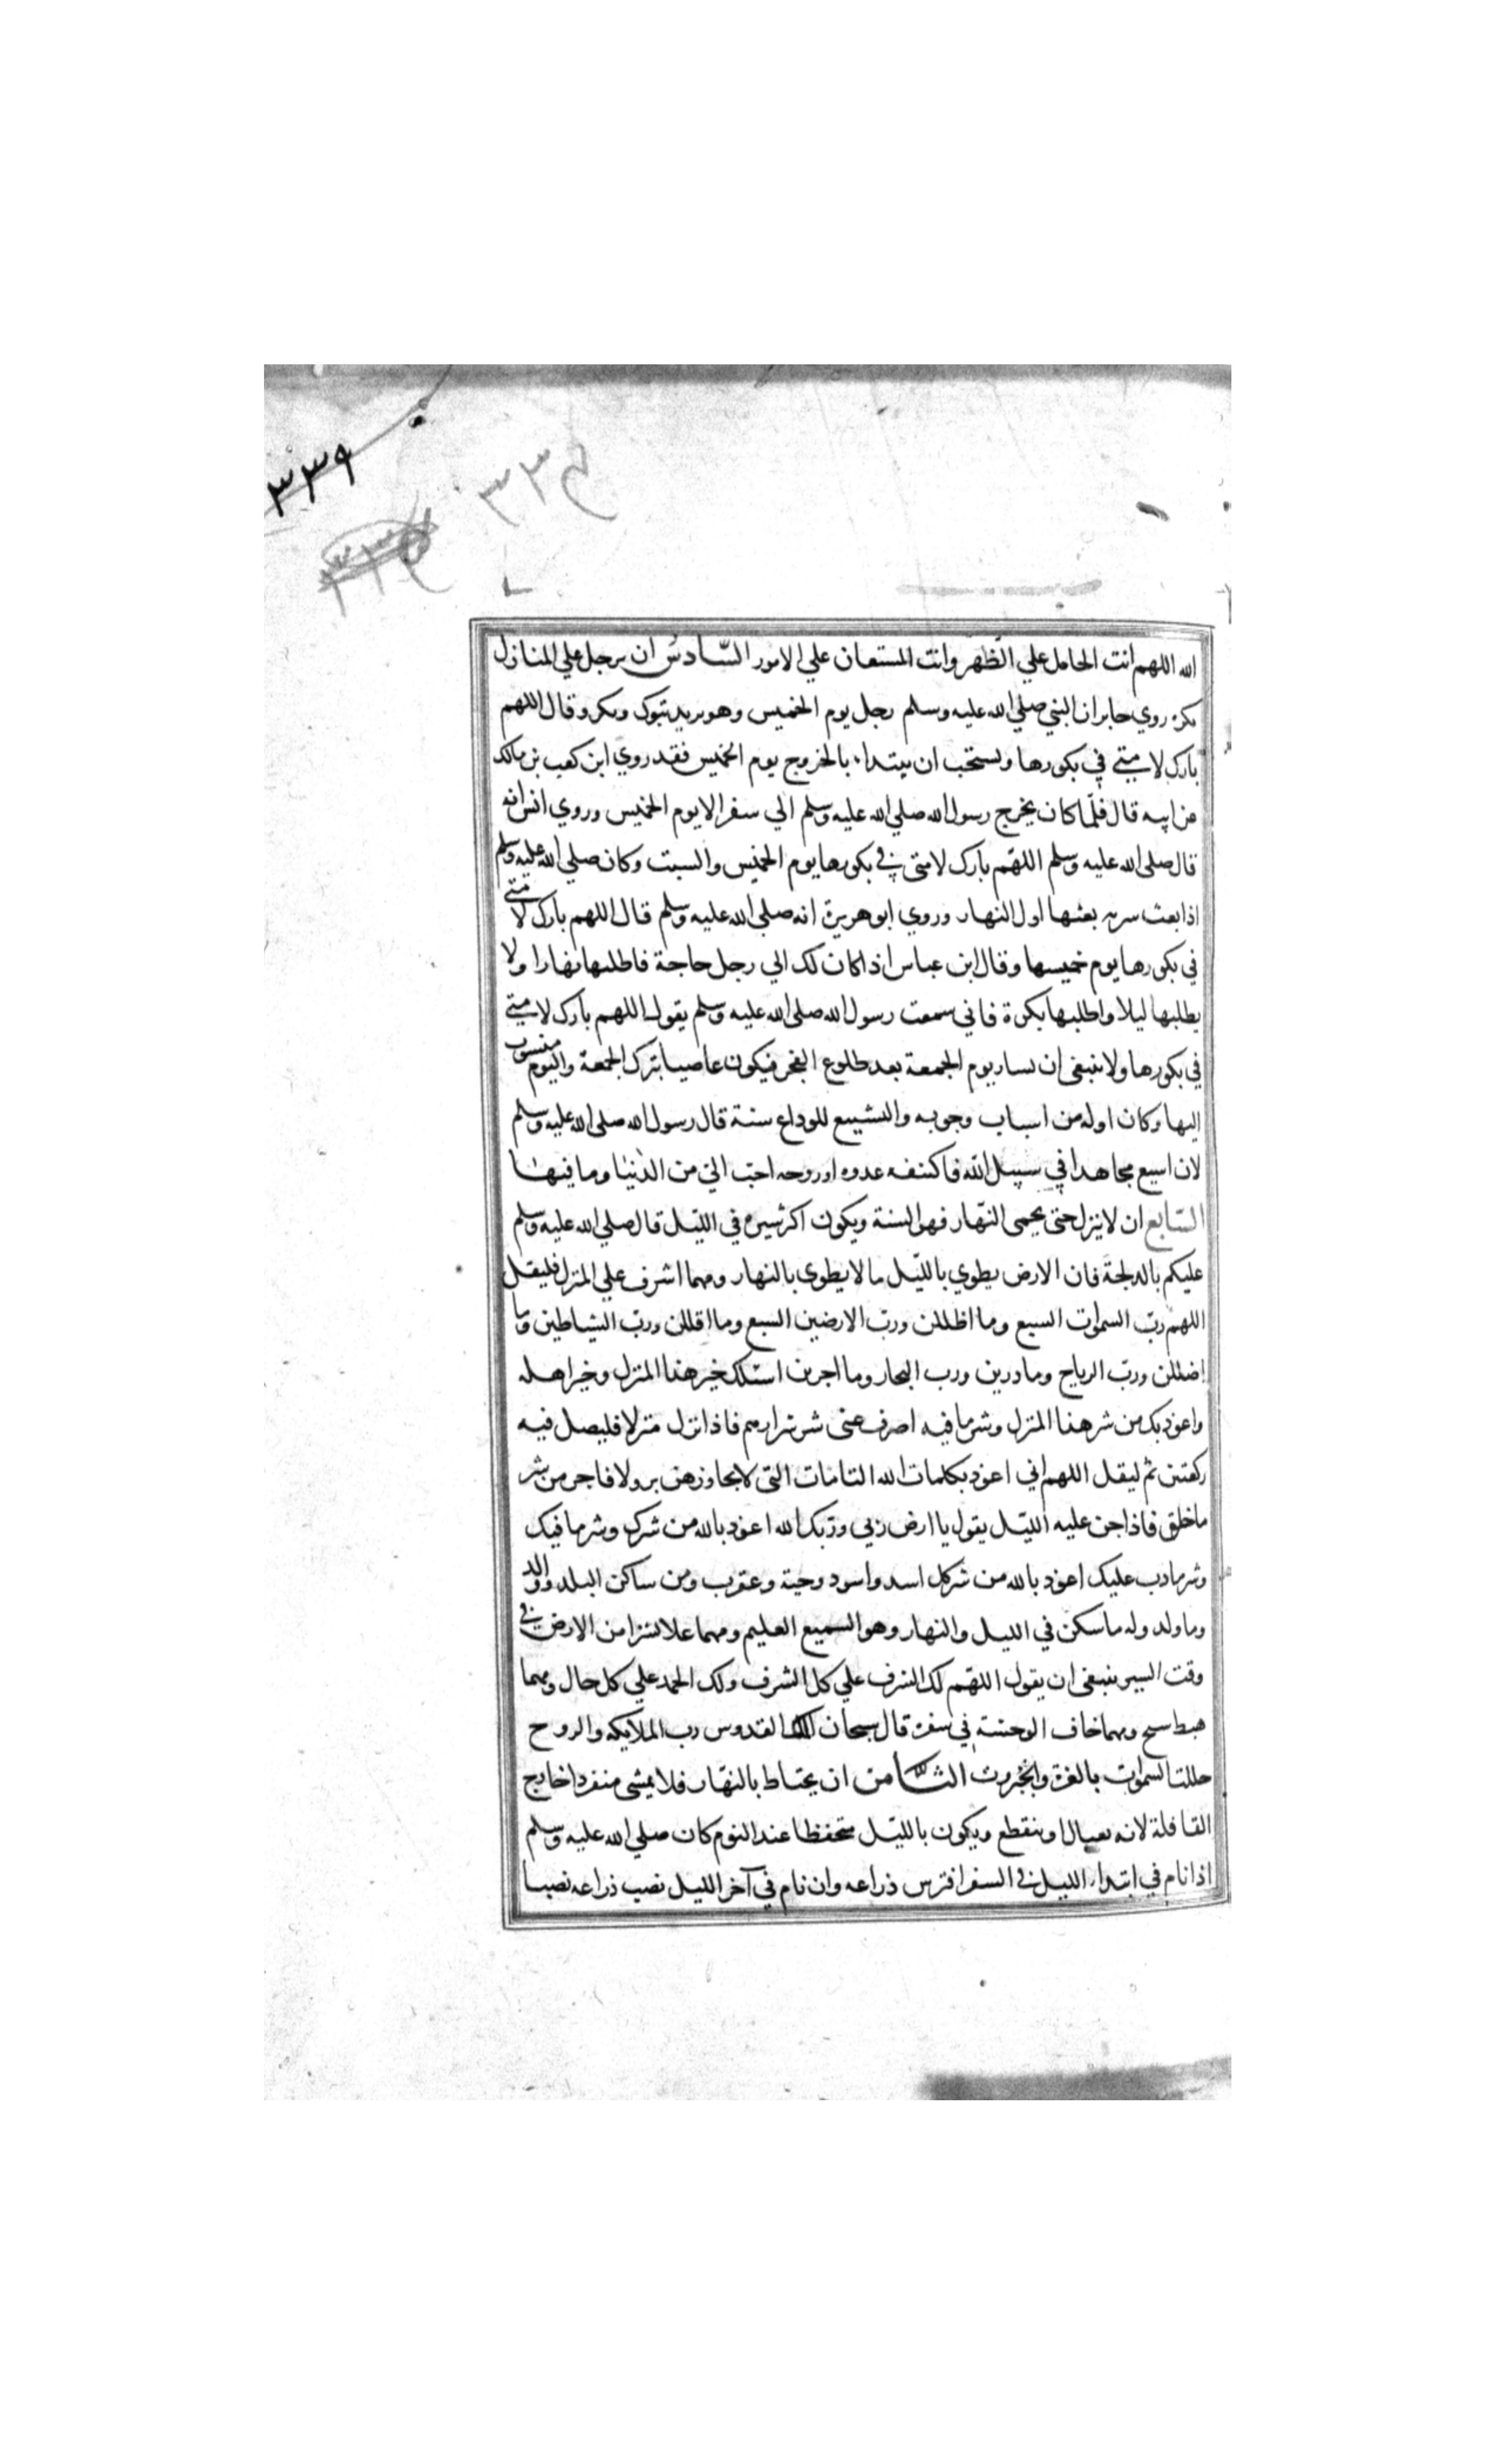 ٣٣٩
٣٣٤
الله اللهم انت الحامل علي الظهر وانت المستعان علي الامور السادس ان يرحل علي المنازل
بكرة روي جابر ان النبي صلي الله عليه وسلم رحل يوم الخميس وهو يريد تبوك وبكر وقال اللهم
بارك لامتي في بكورها ويستحب ان يبتداء بالخروج يوم الخميس فقد روي ابن كعب بن مالك
عن ابيه قال فلما كان يخرج رسول الله صلي الله عليه وسلم الي سفر الا يوم الخميس وروي انس انه
قال صلي الله عليه وسلم اللهم بارك لامتي في بكورها يوم الخميس والسبت وكان صلي الله عليه وسلم
اذا بعث سرية بعثها اول النهار وروي ابو هريرة انه صلي الله عليه وسلم قال اللهم بارك لامتي
في بكورها يوم خميسها وقال ابن عباس اذا كان لك الي رجل حاجة فاطلبها نهارا ولا
يطلبها ليلا واطلبها بكرة فاني سمعت رسول الله صلي الله عليه وسلم يقول اللهم بارك لامتي
في بكورها ولا ينبغي ان يسار يوم الجمعة بعد طلوع الفجر فيكون عاصيا بترك الجمعة واليوم منسوب
اليها وكان اوله من اسباب وجوبه والتشييع للوداع سنة قال رسول الله صلي الله عليه وسلم
لان اسيع مجاهدا في سبيل الله فاكنفه غدوه او روحه احب الي من الدنيا وما فيها
السابع ان لا ينزل حتي يحمي النهار فهو السنة ويكون اكثر سيره في الليل قال صلي الله عليه وسلم
عليكم بالدلجة فان الارض يطوي بالليل ما لا يطوي بالنهار ومهما اشرف علي المنزل فليقل
اللهم رب السموات السبع وما اظللن ورب الارضين السبع وما اقللن ورب الشياطين وما
اضللن ورب الرياح وما درين ورب البحار وما اجرين اسئلك خير هذا المنزل وخير اهله
واعوذ بك من شر هذا المنزل وشر ما فيه اصرف عني شر شرارهم فاذا نزل منزلا فليصل فيه
ركعتين ثم ليقل اللهم اني اعوذ بكلمات الله التامات التي لا يجاوزهن بر ولا فاجر من شر
ما خلق فاذا جن عليه الليل يقول يا ارض ربي وربك الله اعوذ بالله من شرك وشر ما فيك
وشر ما دب عليك اعوذ بالله من شر كل اسد واسود وحية وعقرب ومن ساكن البلد ووالد
وما ولد وله ما سكن في الليل والنهار وهو السميع العليم ومهما علا نشزا من الارض في
وقت السير ينبغي ان يقول اللهم لك الشرف علي كل الشرف ولك الحمد علي كل حال ومهما
هبط سبح ومهما خاف الوحشة في سفره قال سبحان القدوس رب الملايكه والروح
جللت السموات بالعزة والجبروت الثامن ان يحتاط بالنهار فلا يمشي منفردا خارج
القافلة لانه يغتال او ينقطع ويكون بالليل متحفظا عند النوم كان صلي الله عليه وسلم
اذا نام في ابتداء الليل في السفر افترس ذراعه وان نام في آخر الليل نصب ذراعه نصبا